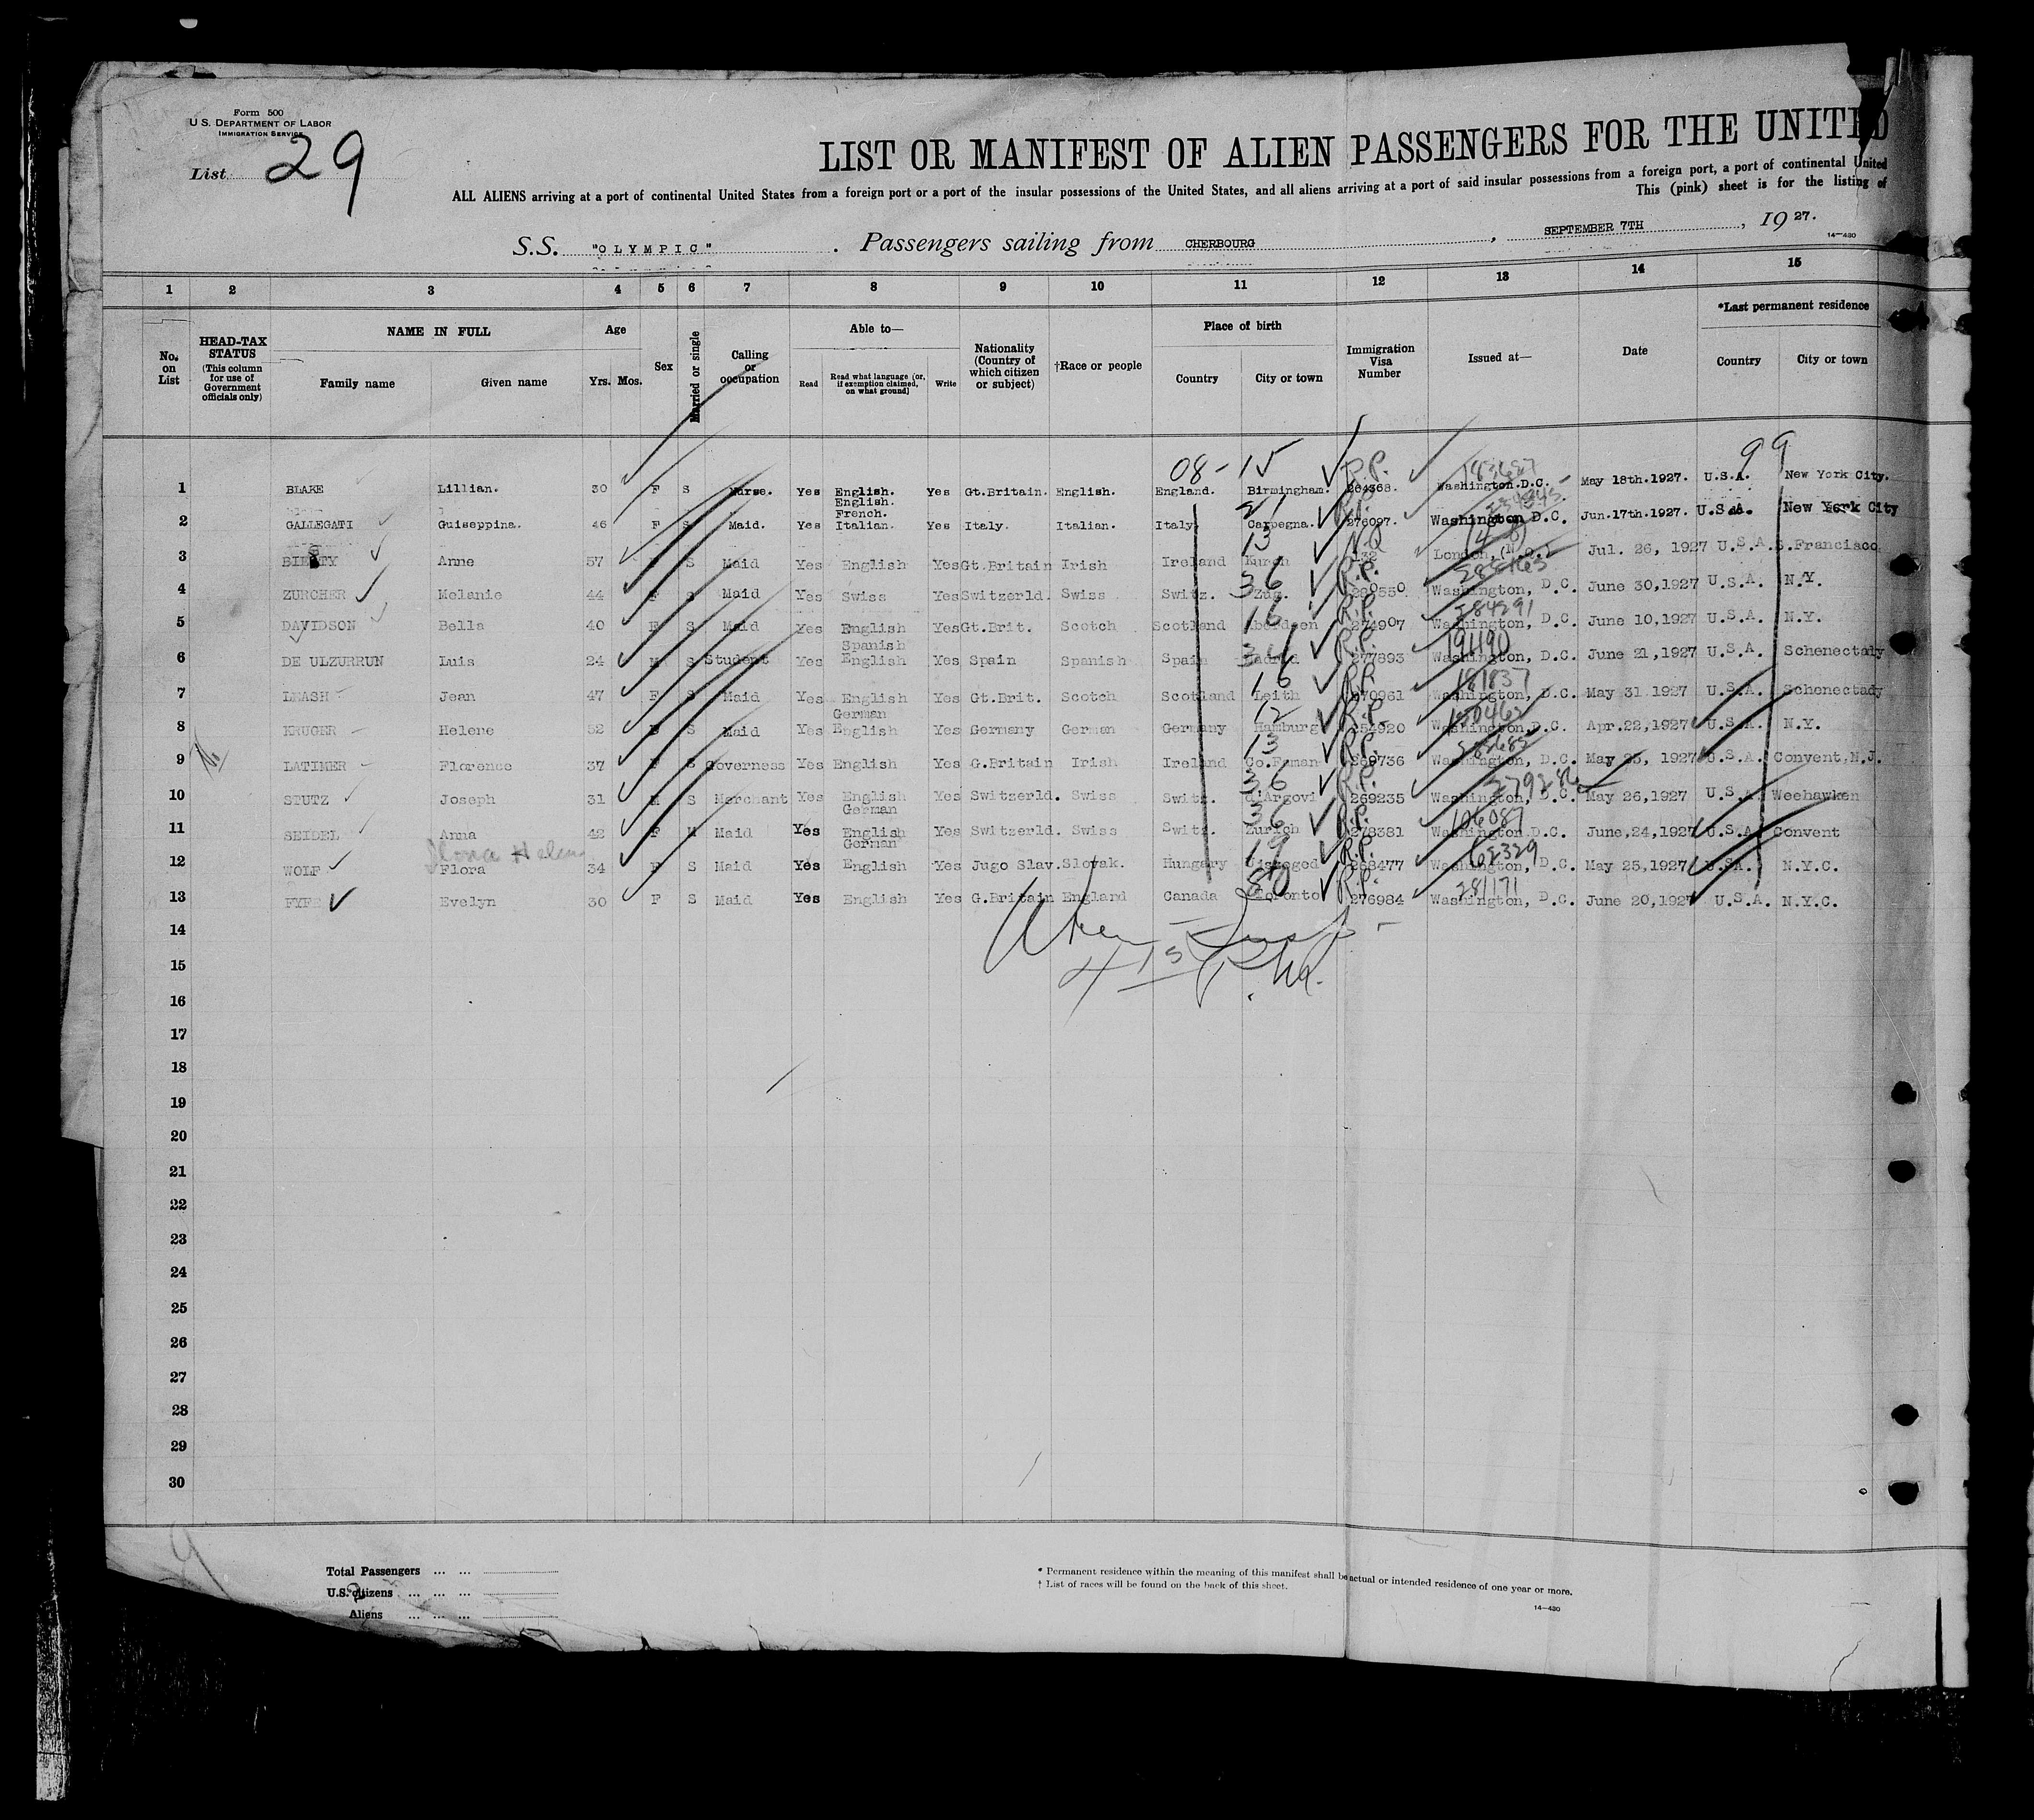 Form 500
U.S. DEPARTMENT OF LABOR
IMMIGRATION SERVICE
List 29
LIST OR MANIFEST OF ALIEN PASSENGERS FOR THE UNITED
ALL ALIENS arriving at a port of continental United States from a foreign port or a port of the insular possessions of the United States, and all aliens arriving at a port of said insular possessions from a foreign port, a port of continental United
This (pink) sheet is for the listing of
S.S. "OLYMPIC" . Passengers sailing from CHERBOURG , SEPTEMBER 7TH , 19 27.
14—430
1 2 3 4 5 6 7 8 9 10 11 12 13 14 15
No. on List
HEAD-TAX STATUS (This column for use of Government officials only)
NAME IN FULL
Family name Given name
Age
Yrs. Mos.
Sex
Married or single
Calling or occupation
Able to—
Read Read what language (or, if exemption claimed, on what ground) Write
Nationality (Country of which citizen or subject)
†Race or people
Place of birth
Country City or town
Immigration Visa Number
Issued at—
Date
*Last permanent residence
Country City or town
08-15 99
1 BLAKE Lillian. 30 F S Nurse. Yes English. Yes Gt.Britain. English. England. Birmingham. R.P. 264368. Washington.D.C. May 18th.1927. U.S.A. New York City.
English.
French.
2 GALLEGATI Guiseppina. 46 F S Maid. Yes Italian. Yes Italy. Italian. Italy. 21 Carpegna. 276097. Washington D.C. Jun.17th.1927. U.S.A. New York City
3 Anne 57 F S Maid Yes English Yes Gt.Britain Irish Ireland 13 132 London, Jul. 26, 1927 U.S.A. S.Francisco
4 ZURCHER Melanie 44 F S Maid Yes Swiss Yes Switzerld. Swiss Switz. 36 Zug. R.P. Washington, D.C. June 30,1927 U.S.A. N.Y.
5 DAVIDSON Bella 40 F S Maid Yes English Yes Gt.Brit. Scotch Scotland 16 Aberdeen R.P. 274907 284291 Washington, D.C. June 10,1927 U.S.A. N.Y.
Spanish
6 DE ULZURRUN Luis 24 M S Student Yes English Yes Spain Spanish Spain 34 Madrid R.P. 277893 191190 Washington, D.C. June 21,1927 U.S.A. Schenectady
7 LEASH Jean 47 F S Maid Yes English Yes Gt.Brit. Scotch Scotland 16 Leith R.P. 270961 181837 Washington, D.C. May 31 1927 U.S.A. Schenectady
German
8 KRUGER Helene 52 F S Maid Yes English Yes Germany German Germany 12 Hamburg R.P. 254920 Washington,D.C. Apr.22,1927 U.S.A. N.Y.
9 LATIMER Florence 37 F S Governess Yes English Yes G.Britain Irish Ireland 13 R.P. Washington, D.C. May 1927 U.S.A. Convent,N.J.
10 STUTZ Joseph 31 M S Merchant Yes English Yes Switzerld. Swiss Switz. 36 d'Argovi R.P. 269235 279286 Washington, D.C. May 26,1927 U.S.A. Weehawken
German
11 SEIDEL Anna 42 F M Maid Yes English Yes Switzerld. Swiss Switz. 36 Zurich R.P. 278381 106087 Washington D.C. June,24,1927 U.S.A. Convent
German
Ilona Helen
12 WOLF Flora 34 F S Maid Yes English Yes Jugo Slav. Slovak. Hungary 19 R.P. 268477 162329 Washington, D.C. May 25,1927 U.S.A. N.Y.C.
13 FYFE Evelyn 30 F S Maid Yes English Yes G.Britain England Canada 80 Toronto R.P. 276984 281171 Washington, D.C. June 20,1927 U.S.A. N.Y.C.
14
15
16
17
18
19
20
21
22
23
24
25
26
27
28
29
30
Total Passengers ... ...
U.S. citizens ... ... ...
Aliens ... ... ...
* Permanent residence within the meaning of this manifest shall be actual or intended residence of one year or more.
† List of races will be found on the back of this sheet.
14—430